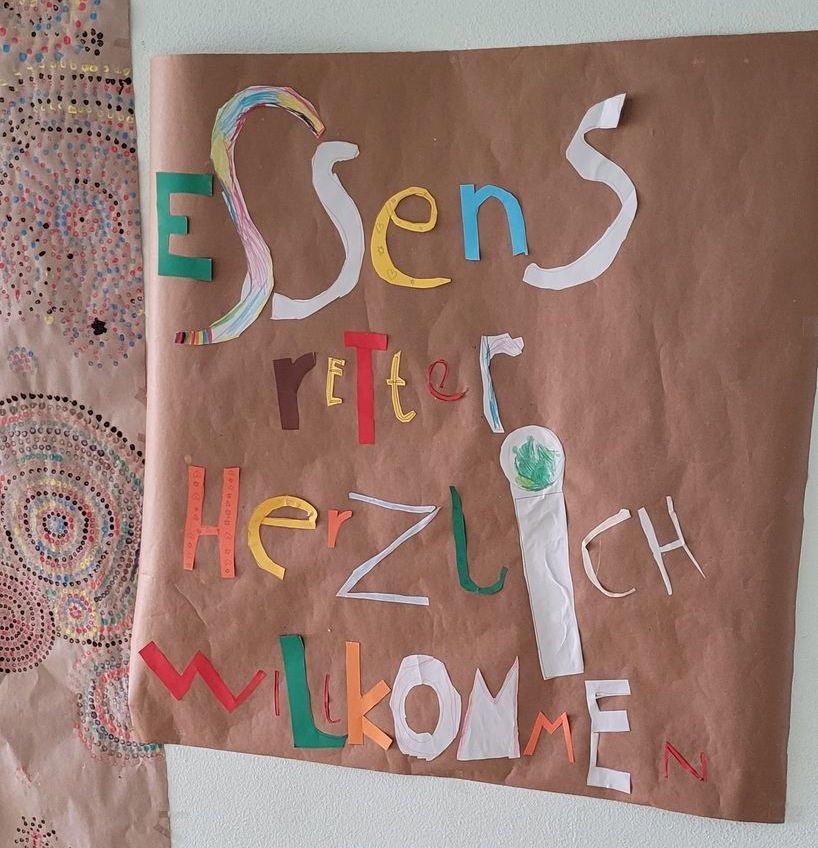 ESSenS
rETter
HerzlicH
WILlkOMMEN